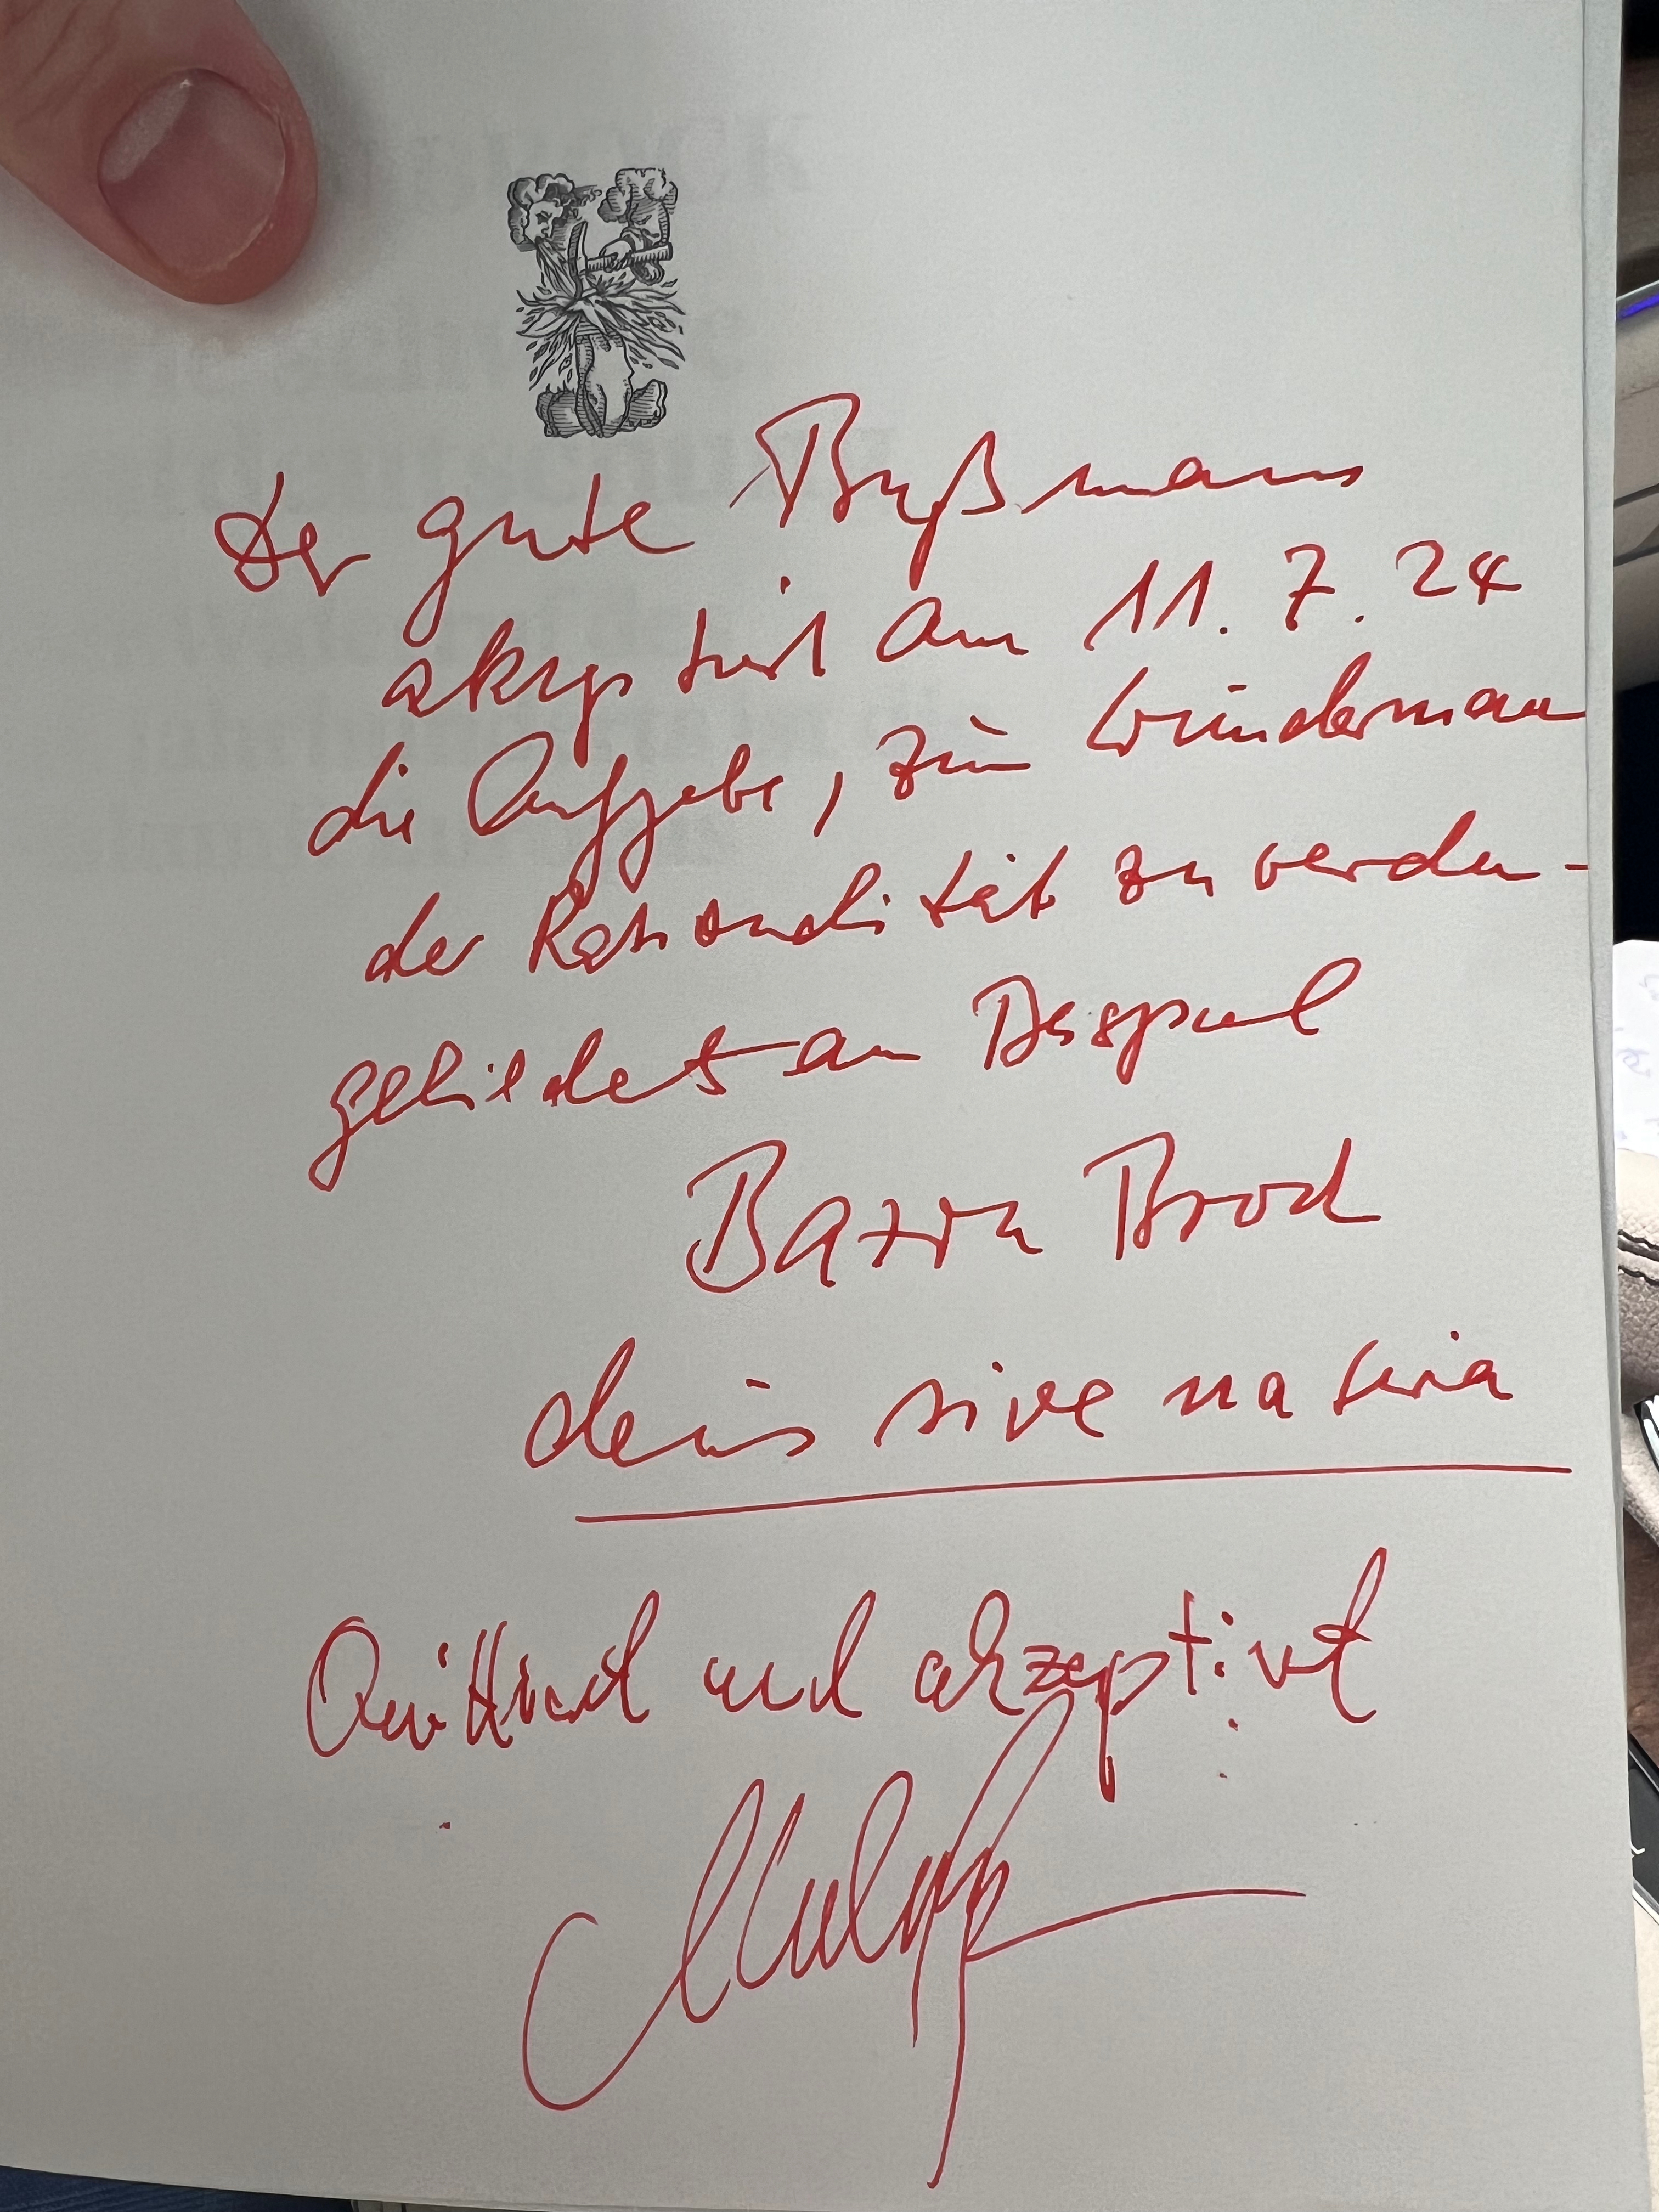 Der gute Bußmann
akzeptiert am 11. 7. 24
die Aufgabe, zum Wundermann
der Rationalität zu werden -
gebildet am Beispiel
Bazon Brock
deus sive natura
Quittiert und akzeptiert